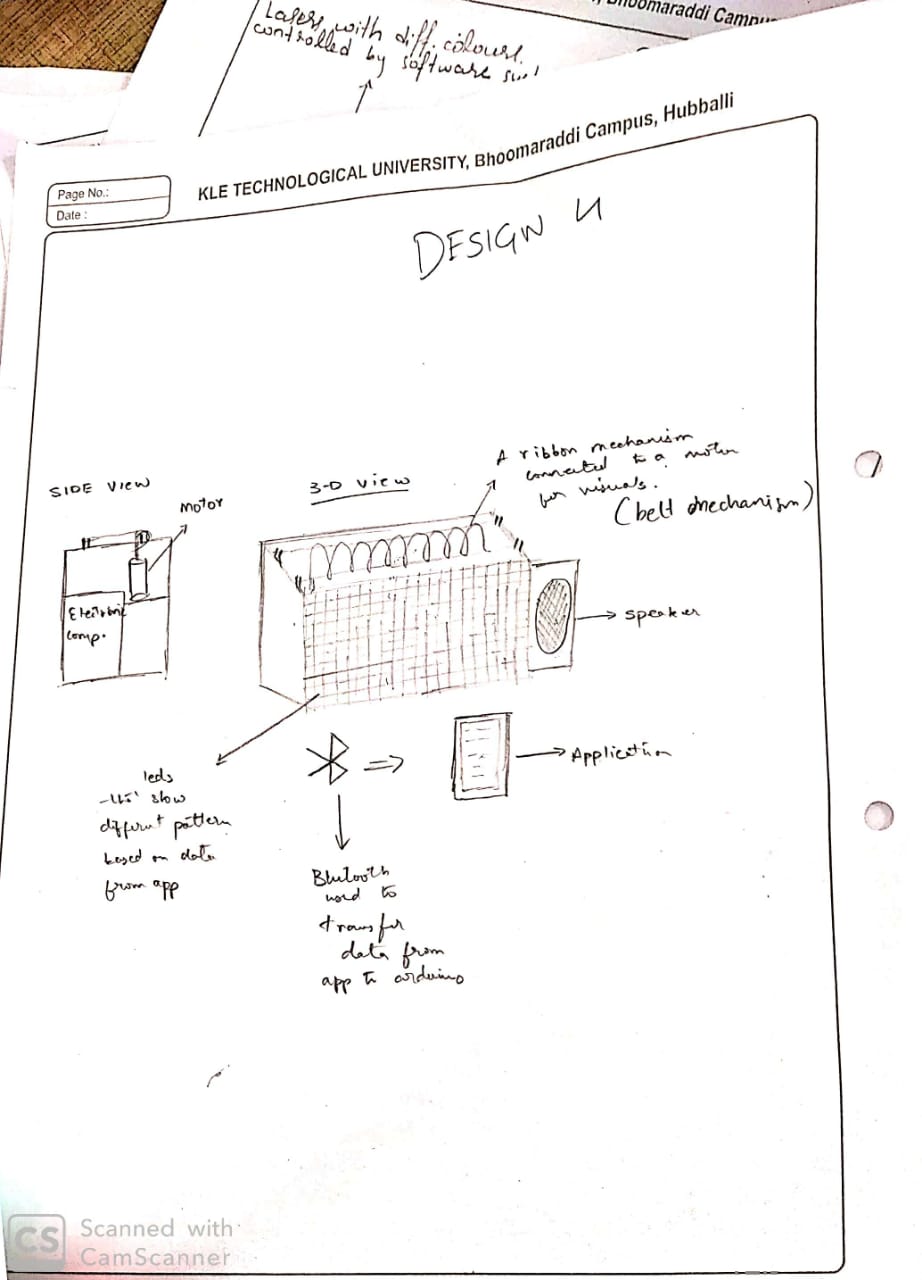 Bhoomaraddi Campus
Lasers with diff. colours
controlled by software
KLE TECHNOLOGICAL UNIVERSITY, Bhoomaraddi Campus, Hubballi
Page No.:
Date :
DESIGN 4
SIDE VIEW
Motor
Electronic
comp.
3-D View
A ribbon mechanism
connected to a motor
for visuals.
(belt mechanism)
speaker
Application
leds
show
different pattern
based on data
from app
Bluetooth
used to
transfer
data from
app to arduino
CS
Scanned with
CamScanner